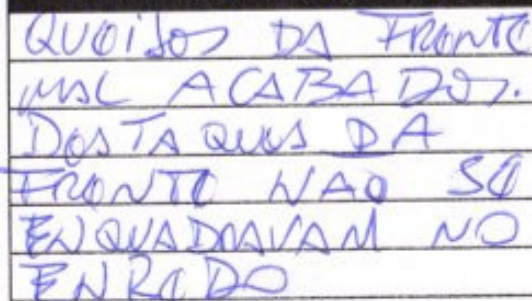 QUEIJOS DA FRENTE
MAL ACABADOS.
DESTAQUES DA
FRENTE NAO SE
ENQUADRAVAM NO
ENREDO